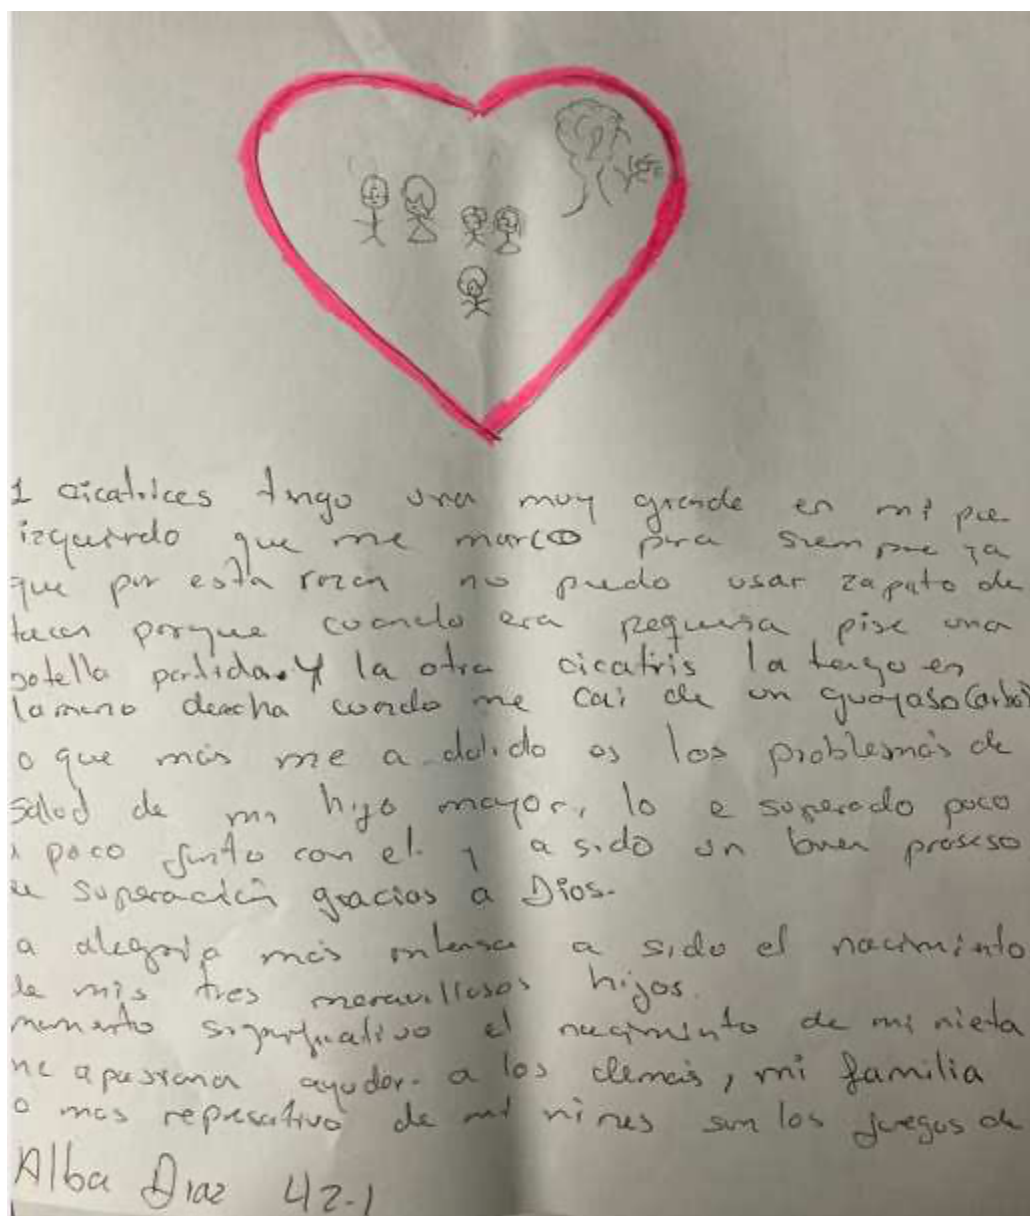 1 cicatrices tengo una muy grande en mi pie
izquierdo que me marco para siempre ya
que por esta rozon no puedo usar zapato de
tacon porque cuando era pequeña pise una
botella partida. Y la otra cicatris la tengo en
la mano derecha cuando me cai de un guayaso (arbol)
o que más me a dolido es los problemas de
salud de mi hijo mayor, lo e superado poco
a poco junto con el y a sido un buen proseso
de superación gracias a Dios.
a alegria más intensa a sido el nacimiento
de mis tres maravillosos hijos.
momento significativo el nacimiento de mi nieta
me apasiona ayudar a los demás, mi familia
o mas represativo de mi niñes son los juegos de
Alba Diaz 42-1